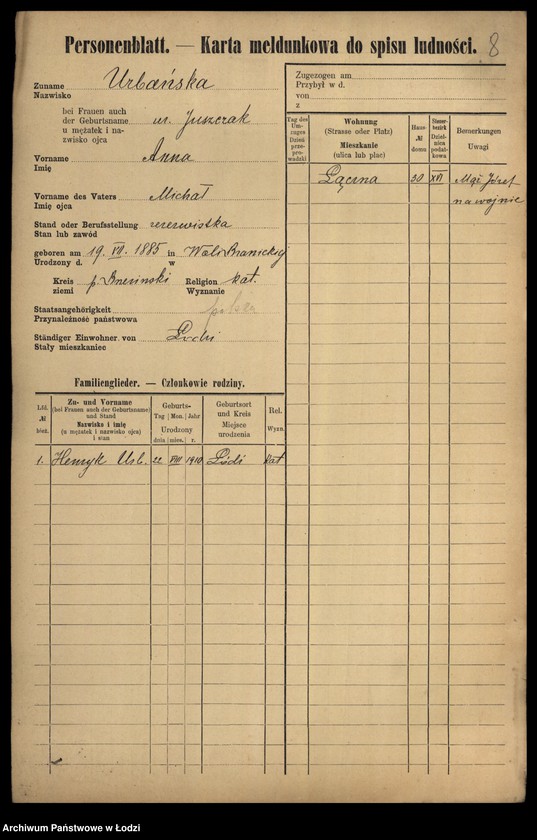 Personenblatt. — Karta meldunkowa do spisu ludności. 8
Zuname Urbańska
Nazwisko
bei Frauen auch
der Geburtsname ur. Juszczak
u mężatek i na-
zwisko ojca
Vorname Anna
Imię
Vorname des Vaters Michał
Imię ojca
Stand oder Berufsstellung rezerwistka
Stan lub zawód
geboren am 19. VII. 1885 in Woli
Urodzony d. w
Kreis p. Brzeziński Religion kat.
ziemi Wyznanie
Staatsangehörigkeit polska
Przynależność państwowa
Ständiger Einwohner von Łodzi
Stały mieszkaniec
Familienglieder. — Członkowie rodziny.
Lfd. № bież.
Zu- und Vorname
(bei Frauen auch der Geburtsname)
und Stand
Nazwisko i imię
(u mężatek i nazwisko ojca)
i stan
Geburts-
Tag Mon. Jahr
Urodzony
dnia mies. r.
Geburtsort
und Kreis
Miejsce
urodzenia
Rel.
Wyzn.
1. Henryk Urb. 22 VIII 1910 Łódź kat
Zugezogen am
Przybył w d.
von
z
Tag des
Um-
zuges
Dzień
prze-
prowadzki
Wohnung
(Strasse oder Platz)
Mieszkanie
(ulica lub plac)
Haus-
№
domu
Steuer-
bezirk
Dziel-
nica
podat-
kowa
Bemerkungen
Uwagi
Łączna 30 XVI Mąż Józef
na wojnie
Archiwum Państwowe w Łodzi